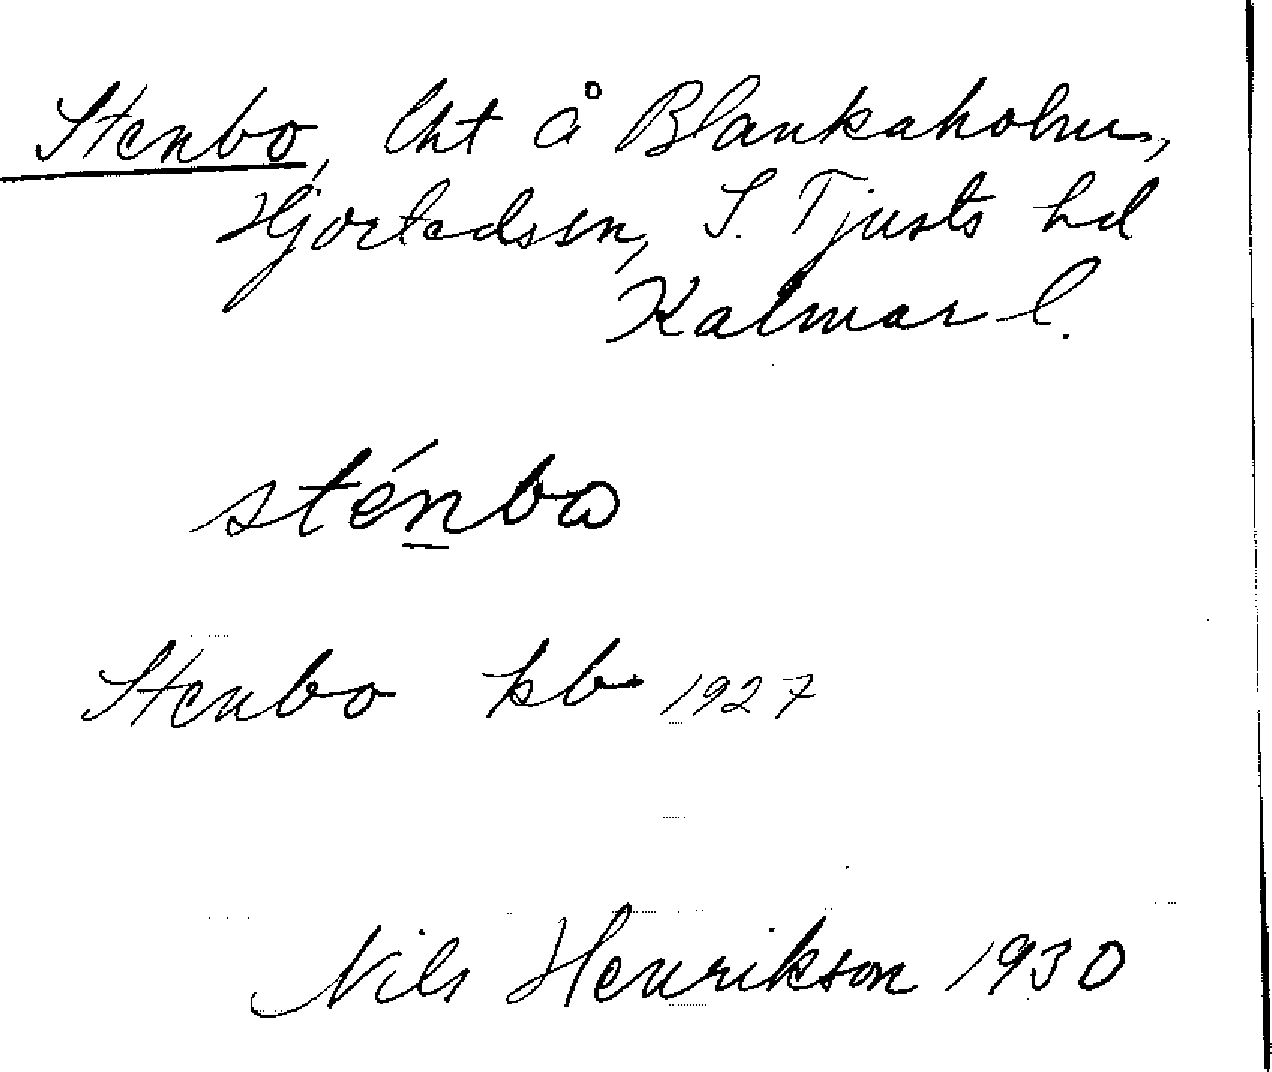 Stenbo, lht å Blankaholm,
Hjorteds sn, S. Tjusts hd
Kalmar l.
sténbω
Stenbo kb 1927
Nils Henrikson 1930